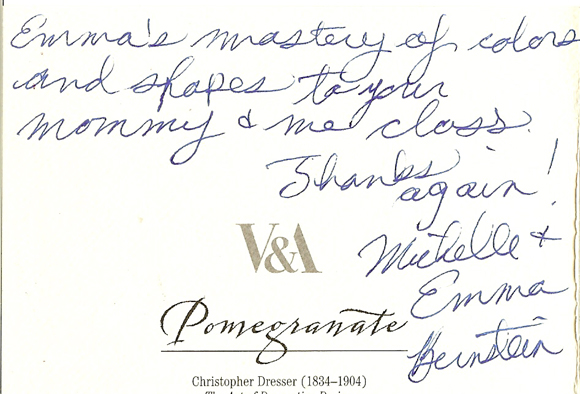 Emma's mastery of colors
and shapes to your
mommy & me class.
Thanks
again!
Michelle &
Emma
Bernstein
V&A
Pomegranate
Christopher Dresser (1834–1904)